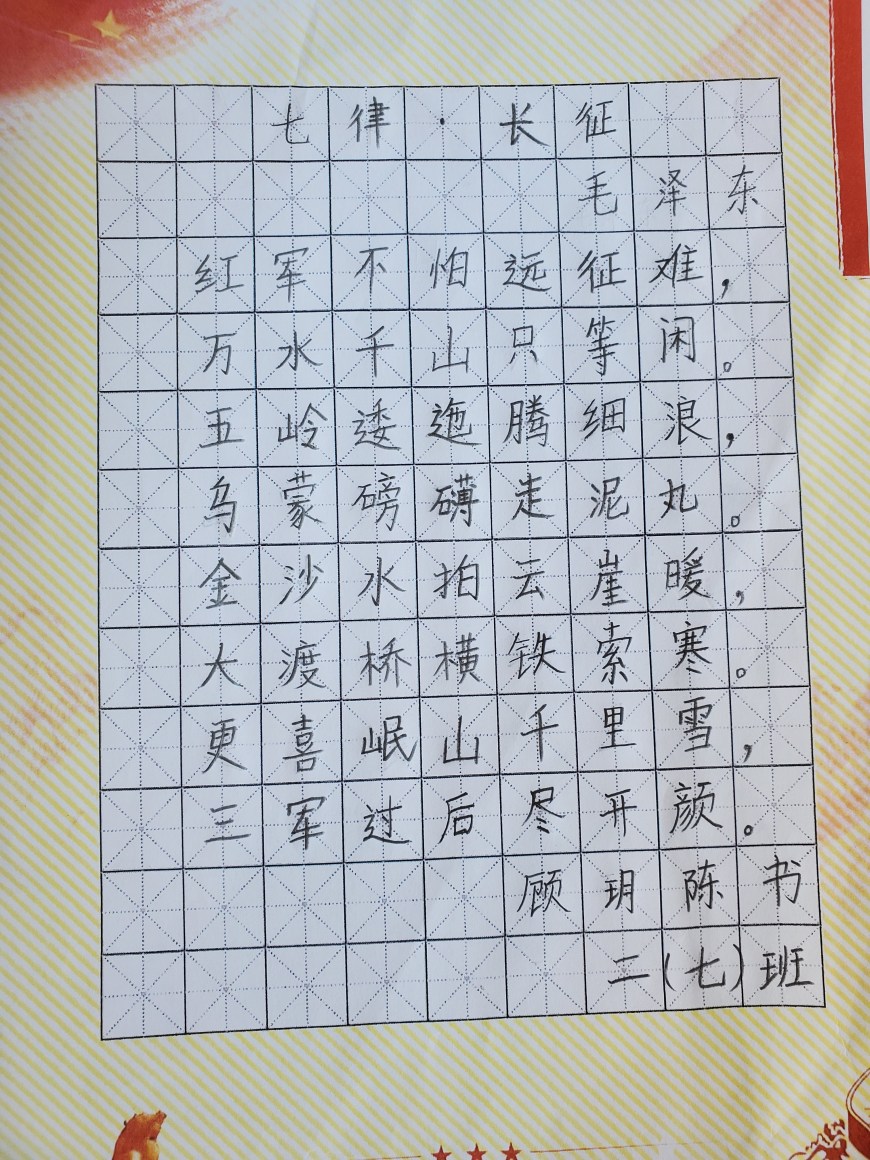 七律·长征
毛泽东
红军不怕远征难，
万水千山只等闲。
五岭逶迤腾细浪，
乌蒙磅礴走泥丸。
金沙水拍云崖暖，
大渡桥横铁索寒。
更喜岷山千里雪，
三军过后尽开颜。
顾玥陈书
二(七)班